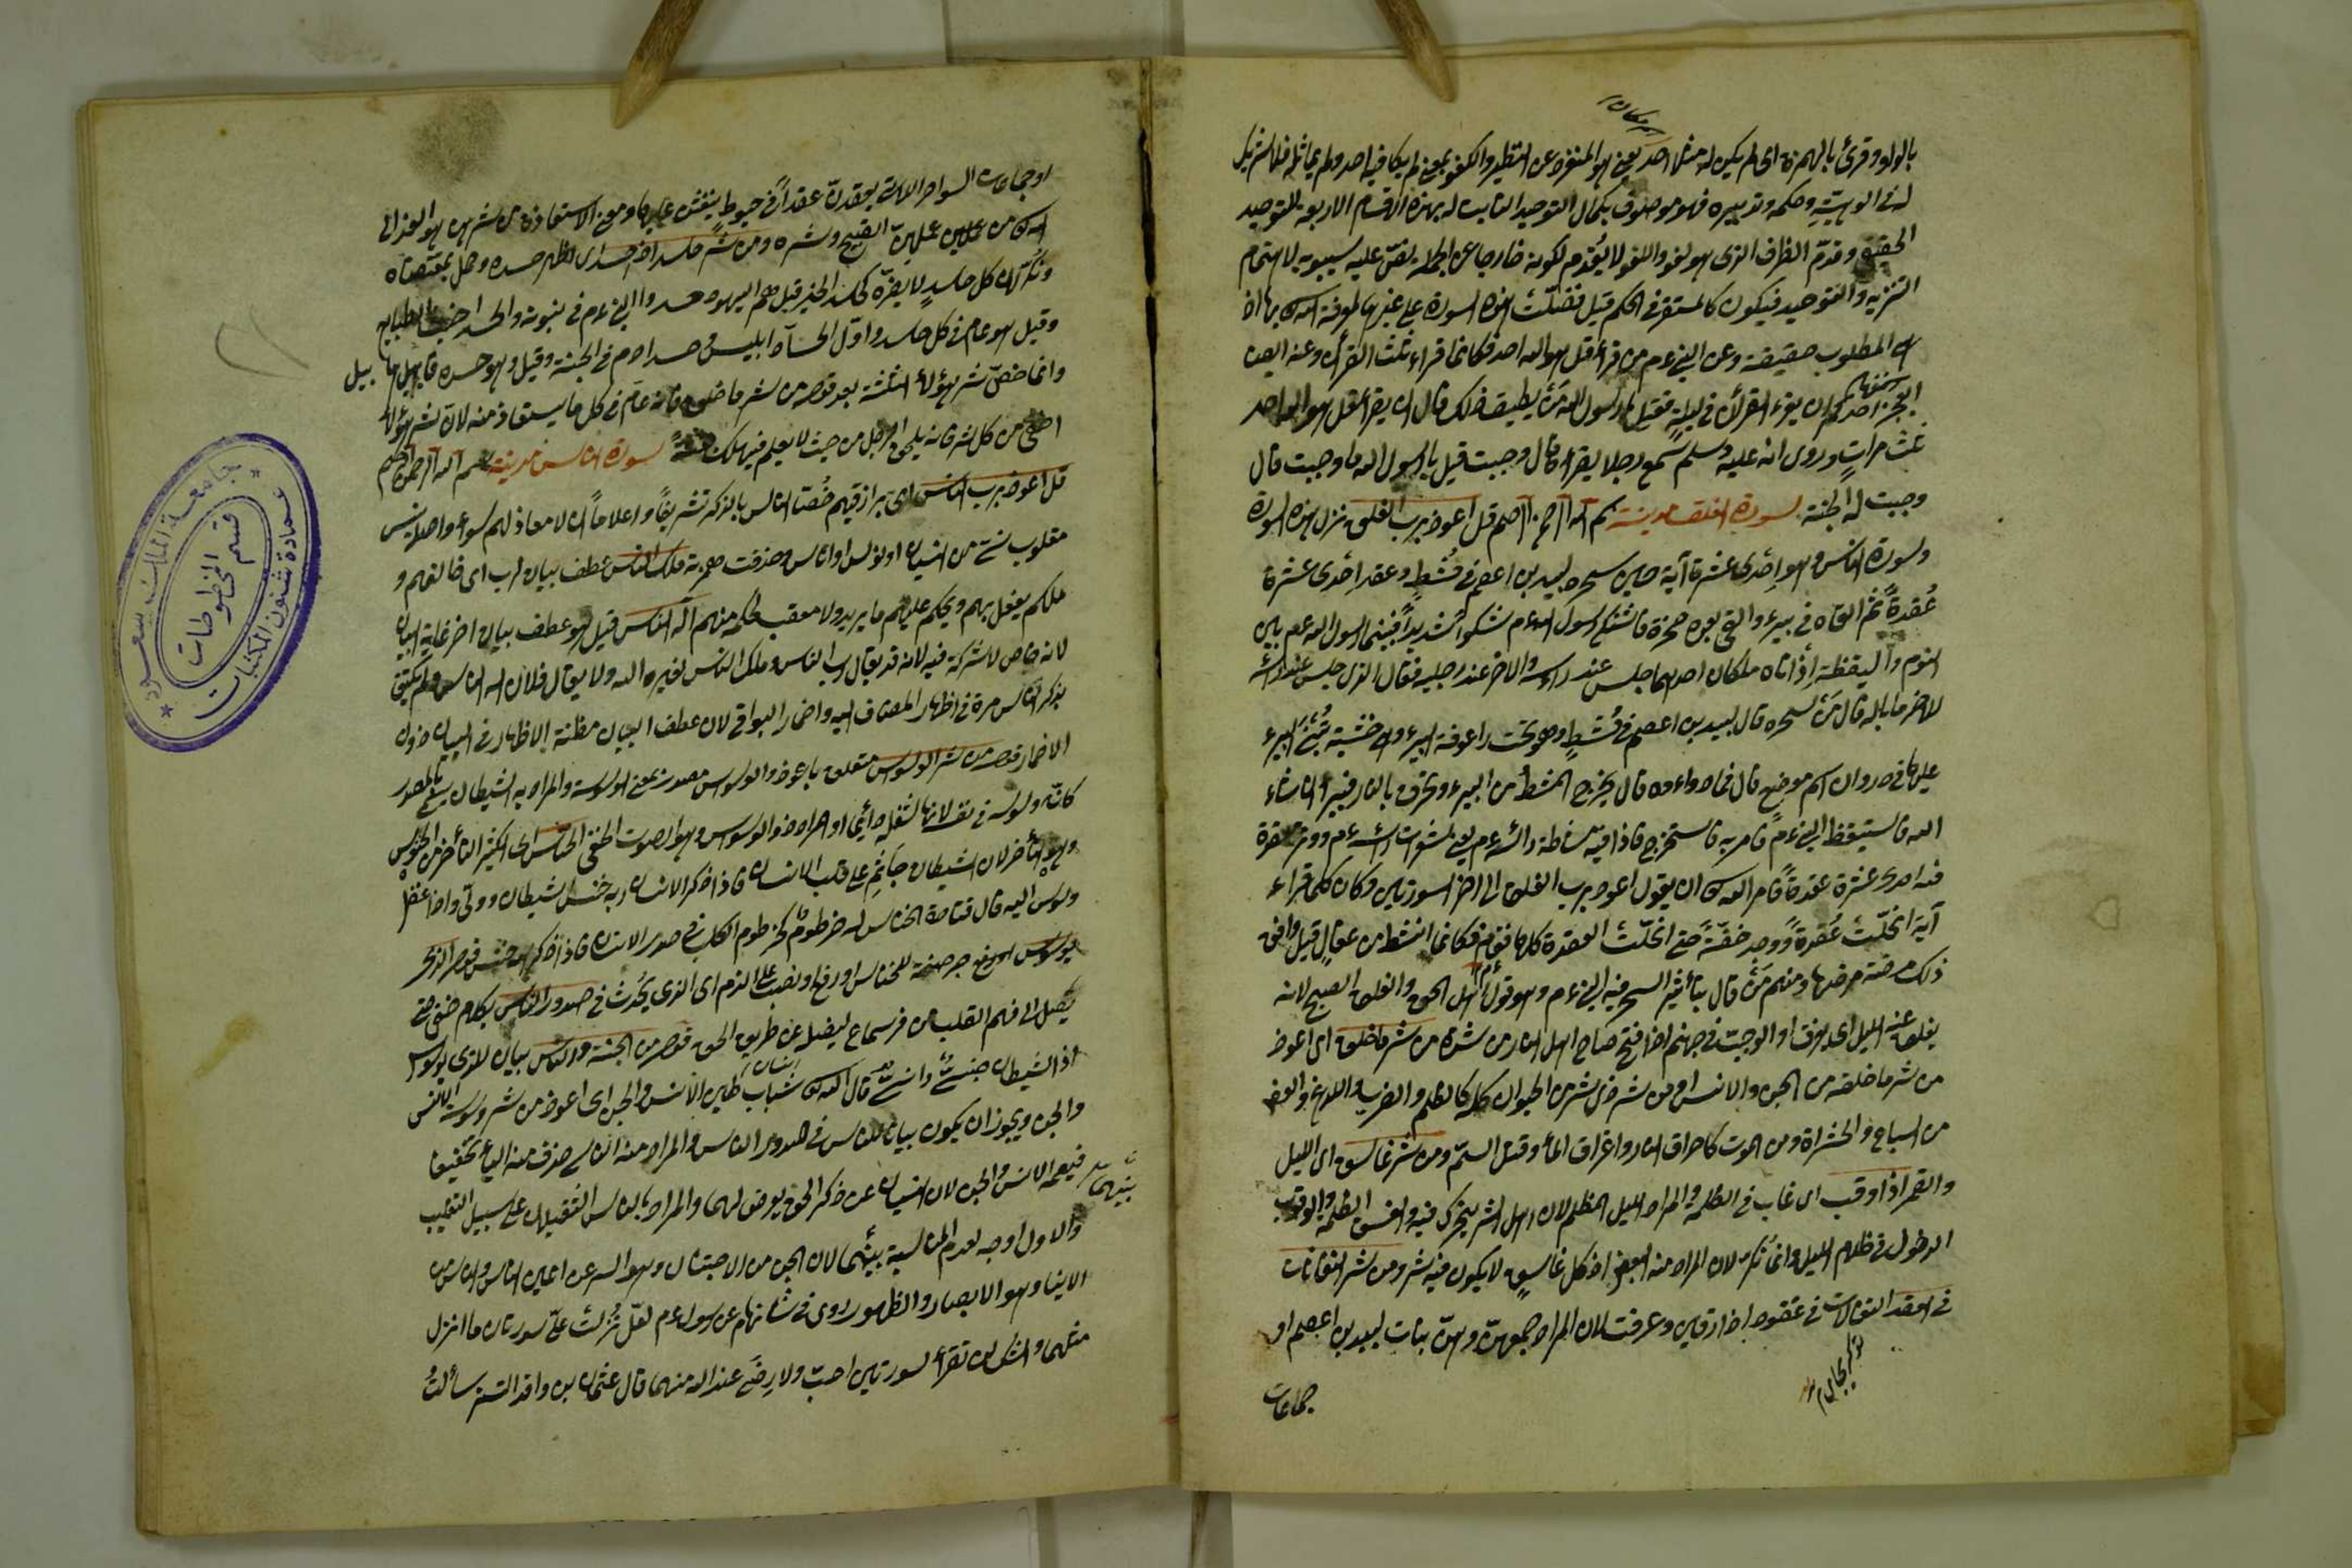 بالواو وقرئ بالهمزة اى لم يكن له مثلا احد يعنى هو المنفرد عن النظير والكفو بمعنى لم يكافيه احد ولم يماثله فلا شريك
له فى الوهيته وحكمه وتدبيره فهو موصوف بكمال التوحيد الثابت له بهذه الاقسام الاربعة للتوحيد
وقدم الظرف الذى هو لغو واللغو لا يقدم لكونه خارجا عن الجملة نص عليه سيبويه لاهتمام
التنزيه والتوحيد فيكون كالمستقر فى الحكم قيل فضلت هذه السورة على غيرها لمعرفة الله بها اذ
هى المطلوب حقيقة وعن النبى عم من قرأ قل هو الله احد فكانما قراء ثلث القرآن وعنه ايضا
ايعجز احدكم ان يقرء القرآن فى ليلة فقيل يا رسول الله من يطيق ذلك قال ان يقرأ قل هو الله احد
ثلث مرات وروى انه عليه وسلم سمع رجلا يقرأ فقال وجبت قيل يا رسول الله ما وجبت قال
وجبت له الجنة سورة الفلق مدينة بسم الله الرحمن الرحيم قل اعوذ برب الفلق نزل هذه السورة
وسورة الناس وهو احدى عشرة آية حين سحره لبيد بن اعصم فى مشط وعقد احدى عشرة
عقدة ثم القاه فى بيرء والقى بعده صخرة فاشتكى رسول الله عم شكوا شديدا فبينما رسول الله عم بين
النوم واليقظة اذ اتاه ملكان احدهما جلس عند رأسه والآخر عند رجليه فقال الذى جلس عند رأسه
للاخر ما باله قال من سحره قال لبيد بن اعصم فى مشط وهو تحت راعوفة البيرء
عليها فى صدوان اسم موضع قال فما دواءه قال يخرج المشط من البيرء ويحرق بالنار فيبرأ ان شاء
الله فاستيقظ النبى عم فامر به فاستخرج فاذا فيه مشاطة رأسه عم يعنى شعرات رأسه عم ووتر
فيه احدى عشرة عقدة فامر الله ان يقول اعوذ برب الفلق الى اخر السورتين وكان كلما قراء
آية انحلت عقدة ووجد خفة حتى انحلت العقدة كلها فقام فكانما انشط من عقال قيل وافق
ذلك مرضة مرضها ومنهم من قال بتأثير السحر فيه النبى عم وهو قول اهل الحق والفلق الصبح لانه
يفلق عنه الليل اى يفرق او الوجب فى جهنم اذا فتح صاح اهل النار من شره من شر ما خلق اى اعوذ
من شر ما خلقه من الجن والانس ومن شر ذى شر من الحيوان كله كالظلم والضرب واللدغ والعض
من السباع والحشراة ومن الموت كاحراق النار واغراق الماء وقتل السم ومن شر غاسق اى الليل
والقمر اذا وقب اى غاب فى الظلمة والمراد الليل المظلم لان اهل الشر يتحرك فيه والغسق الظلمة والوقوب
الدخول فى ظلام الليل وانما نكر لان المراد منه البعض اذ كل غاسق لا يكون فيه شر ومن شر النفاثات
فى العقد النفثات فى عقود اذا رقين وعرفت لان المراد جمعهن وهن بنات لبيد بن اعصم او
جماعات
او جماعات السواحر اللاتى يعقدن عقدا فى خيوط ينفثن عليها ومعنى الاستعاذة من شرهن هو العوذ الى
الله من عملهن القبيح وشره ومن شر حاسد اذا حسد اى اظهر حسده وعمل بمقتضاه
ونكر لان كل حاسد لا يضره كحاسد الخير قيل هم اليهود حسدوا النبى عم فى نبوته والحسد اخبث الطبايع
وقيل هو عام فى كل حاسد واول الحساد ابليس حسد ادم فى الجنة وقيل وهو حسد قابيل هابيل
وانما خص شر هؤلاء الثلثة بعد قوله من شر ما خلق فانه عام فى كل ما يستعاذ منه لان شر هؤلاء
اخفى من كل شر فانه يلحق الرجل من حيث لا يعلم فيهلك سورة الناس مدينة بسم الله الرحمن الرحيم
قل اعوذ برب الناس اى برازقهم خص الناس بالذكر تشريفا واعلاما ان لا معاذ لهم سواه واصله
مقلوب نسى من النسيان او نوس او اناس وحذفت همزته ملك الناس عطف بيان لرب اى خالقهم و
ملكهم يفعل بهم ويحكم عليهم ما يريد ولا معقب لحكمه منهم اله الناس قيل هو عطف بيان اخر غاية البيان
لانه خاص لا شركة فيه لانه قد يقال رب الناس وملك الناس لغيره الله ولا يقال فلان اله الناس ولم يكتف
بذكر الناس مرة فى اظهار المضاف اليه واضمار البواقى لان عطف البيان مظنة الاظهار فى البيان دون
الاضمار قوله من شر الوسواس متعلق باعوذ والوسواس مصدر بمعنى الوسوسة والمراد به الشيطان سمى بالمصدر
كانه وسوسة فى نفسه لانها شغله دائما او المراد ذو الوسواس وهو الصوت الخفى الخناس اى الكثير التأخر من الخنوس
وهو التأخر لان الشيطان جاثم على قلب الانسان فاذا ذكر الانسان ربه خنس الشيطان وولى واذا غفل
وسوس اليه قال قتادة الخناس له خرطوم كخرطوم الكلب فى صدر الانسان فاذا ذكر الله خنس قوله الذى
يوسوس جر صفة للخناس او رفع او نصب على الذم اى الذى يحدث فى صدور الناس بكلام خفى حتى
يصل الى فهم القلب من غير سماع ليضله عن طريق الحق قوله من الجنة والناس بيان للذى يوسوس
اذ الشيطان جنى وانسى قال الله شياطين الانس والجن اى اعوذ من شر وسوسة الانس
والجن ويجوز ان يكون بيانا للناس فى صدور الناس والمراد منه الناسى حذف منه الياء تخفيفا
فيعم الانس والجن لان النسيان عن ذكر الحق يعرض لهما والمراد بالناس الثقيلان على سبيل التغليب
والاول اوجه لعدم المناسبة بينهما لان الجن من الاجتنان وهو الستر عن اعين الناس والناس من
الايناس وهو الابصار والظهور روى فى شانهما عن رسول عم لقد نزلت على سورتان ما انزل
مثلهما وانك لن تقرأ سورتين احب ولا ارضى عند الله منهما قال عثمان بن واقد سألت
جامعة الملك سعود
عمادة شئون المكتبات
قسم المخطوطات